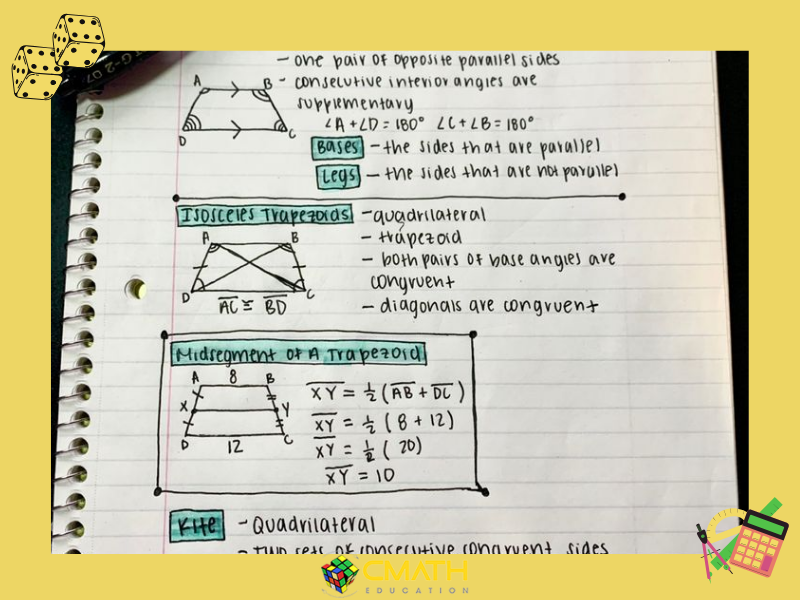 - one pair of opposite parallel sides
- consecutive interior angles are
supplementary
∠A + ∠D = 180° ∠C + ∠B = 180°
A B
D C
Bases - the sides that are parallel
Legs - the sides that are not parallel
Isosceles Trapezoids - quadrilateral
- trapezoid
- both pairs of base angles are
congruent
- diagonals are congruent
A B
D C
AC ≅ BD
Midsegment of A Trapezoid
A 8 B
X Y
D 12 C
XY = 1/2 (AB + DC)
XY = 1/2 (8 + 12)
XY = 1/2 (20)
XY = 10
Kite - Quadrilateral
- two sets of consecutive congruent sides
CMATH
EDUCATION